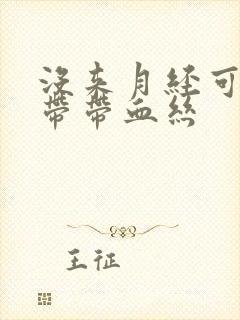 没来月经可
带带血丝
王征